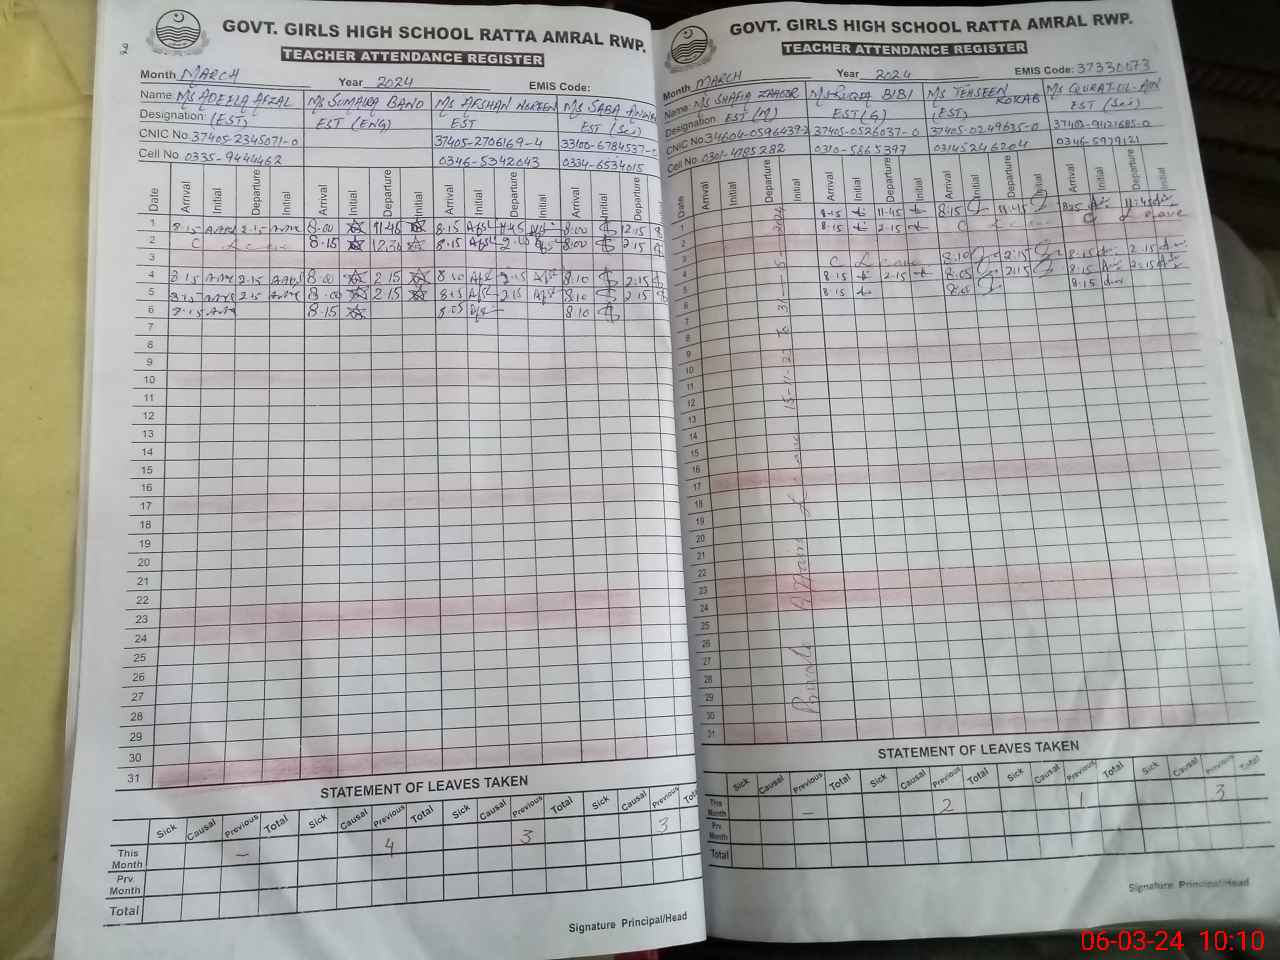 2
GOVT. GIRLS HIGH SCHOOL RATTA AMRAL RWP.
TEACHER ATTENDANCE REGISTER
Month MARCH Year 2024 EMIS Code:
Name: Ms ADEELA AFZAL Ms SUMAIRA BANO Ms AFSHAN NOREEN Ms SABA
Designation: (EST) EST (ENG) EST EST (Sci)
CNIC No. 37405-2345071-0 37405-2706169-4 33100-6784537-
Cell No 0335-9444462 0346-5342043 0334-6534015
Date Arrival Initial Departure Initial Arrival Initial Departure Initial Arrival Initial Departure Initial Arrival Initial Departure
1 8.15 2.15 8.00 11.45 8.15 11.45 8.00 12.15
2 C Leave 8.15 12.30 8.15 8.00 2.15
3
4 8.15 2.15 8.00 2.15 8.10 2.15 8.10 2.15
5 2.15 8.00 2.15 8.05 2.15 8.10 2.15
6 8.15 8.15 8.05 8.10
7
8
9
10
11
12
13
14
15
16
17
18
19
20
21
22
23
24
25
26
27
28
29
30
31
STATEMENT OF LEAVES TAKEN
Sick Causal Previous Total Sick Causal Previous Total Sick Causal Previous Total Sick Causal Previous
This Month - 4 3 3
Prv. Month
Total
Signature Principal/Head
GOVT. GIRLS HIGH SCHOOL RATTA AMRAL RWP.
TEACHER ATTENDANCE REGISTER
Month MARCH Year 2024 EMIS Code: 37330073
Name: Ms SHAFIA ZAHOOR Ms RUQIA BIBI Ms TEHSEEN KOKAB Ms QURAT-UL-AIN
Designation: EST (M) EST (G) (EST) EST (Sci)
CNIC No. 34604-0596439-2 37405-0526037-0 37405-0249635-0 37402-9421685-0
Cell No 0301-4785282 0310-5865397 03145246204 0346-5979121
Date Arrival Initial Departure Initial Arrival Initial Departure Initial Arrival Initial Departure Initial Arrival Initial Departure Initial
1 8.15 11.45 8.15 11.45 11.45
2 8.15 2.15 C Leave C Leave
3
4 C Leave 8.10 2.15 8.15 2.15
5 8.15 2.15 8.05 2.15 8.15 2.15
6 8.15 8.15
7
8
9
10
11
12
13
14
15
16
17
18
19
20
21
22
23
24
25
26
27
28
29
30
31
Leave
STATEMENT OF LEAVES TAKEN
Sick Causal Previous Total Sick Causal Previous Total Sick Causal Previous Total Sick Causal Previous Total
This Month - 2 1 3
Prv. Month
Total
Signature Principal/Head
06-03-24 10:10